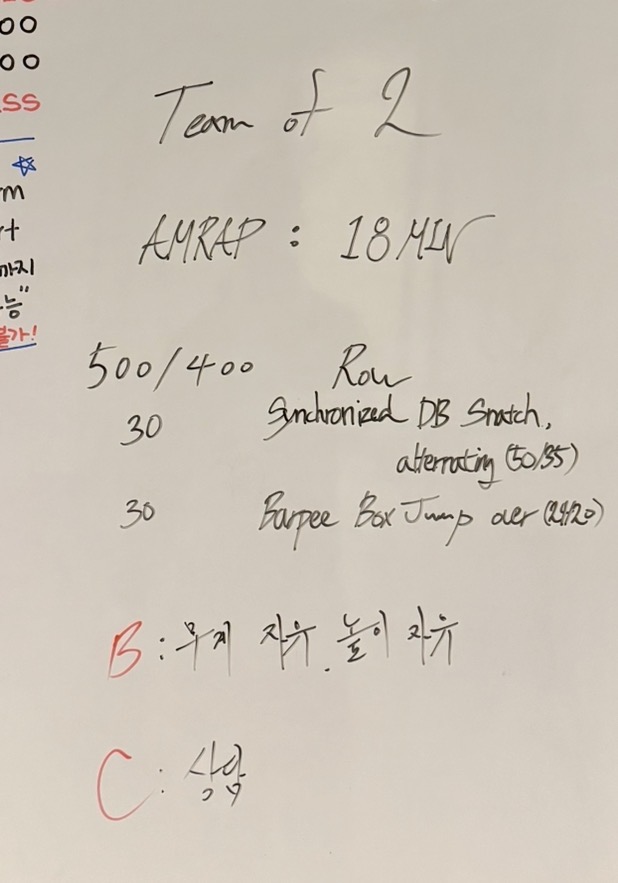 00
00
SS
m
까지
능"
불가!
Team of 2
AMRAP : 18 MIN
500/400 Row
30 Synchronized DB Snatch,
alternating (50/35)
30 Burpee Box Jump over (24/20)
B : 무게 자유. 높이 자유
C :